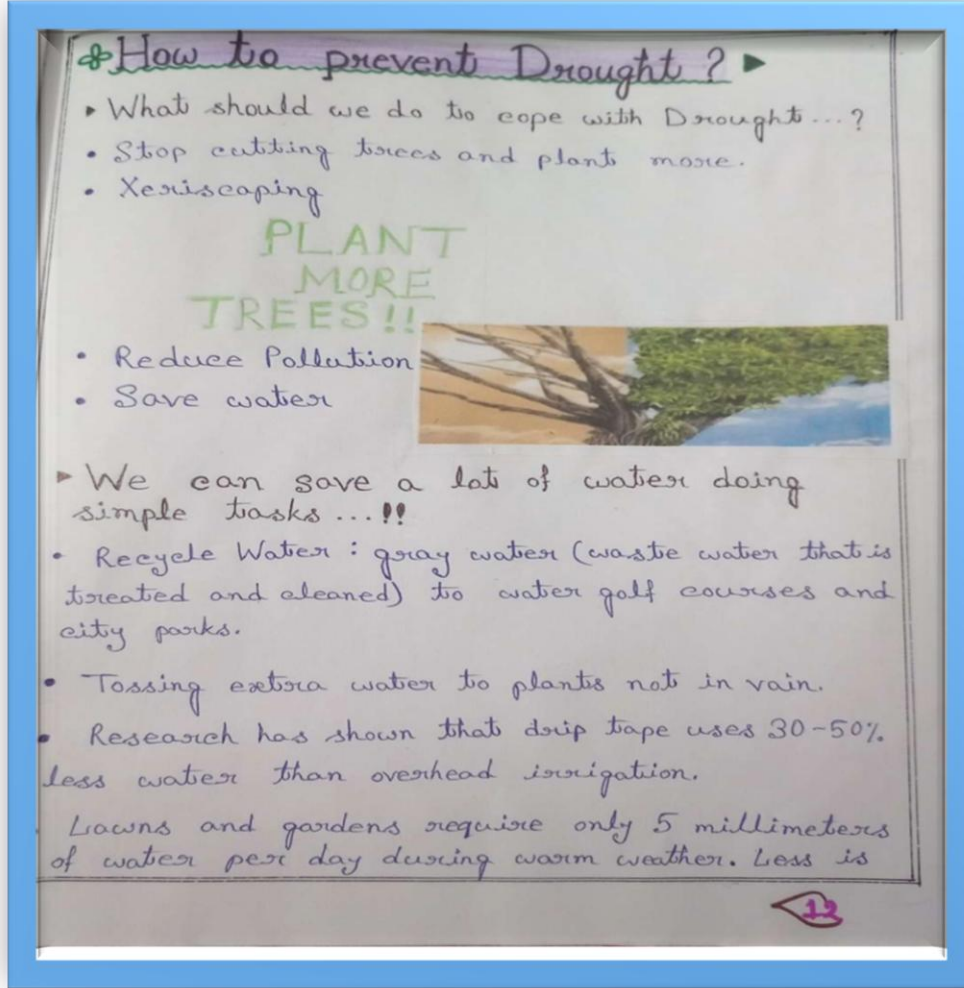 How to prevent Drought ?
What should we do to cope with Drought...?
• Stop cutting trees and plant more.
• Xeriscaping
PLANT
MORE
TREES!!
• Reduce Pollution
• Save water
We can save a lot of water doing
simple tasks ...!!
• Recycle Water : gray water (waste water that is
treated and cleaned) to water golf courses and
city parks.
• Tossing extra water to plants not in vain.
• Research has shown that drip tape uses 30-50%
less water than overhead irrigation.
Lawns and gardens require only 5 millimeters
of water per day during warm weather. Less is
12